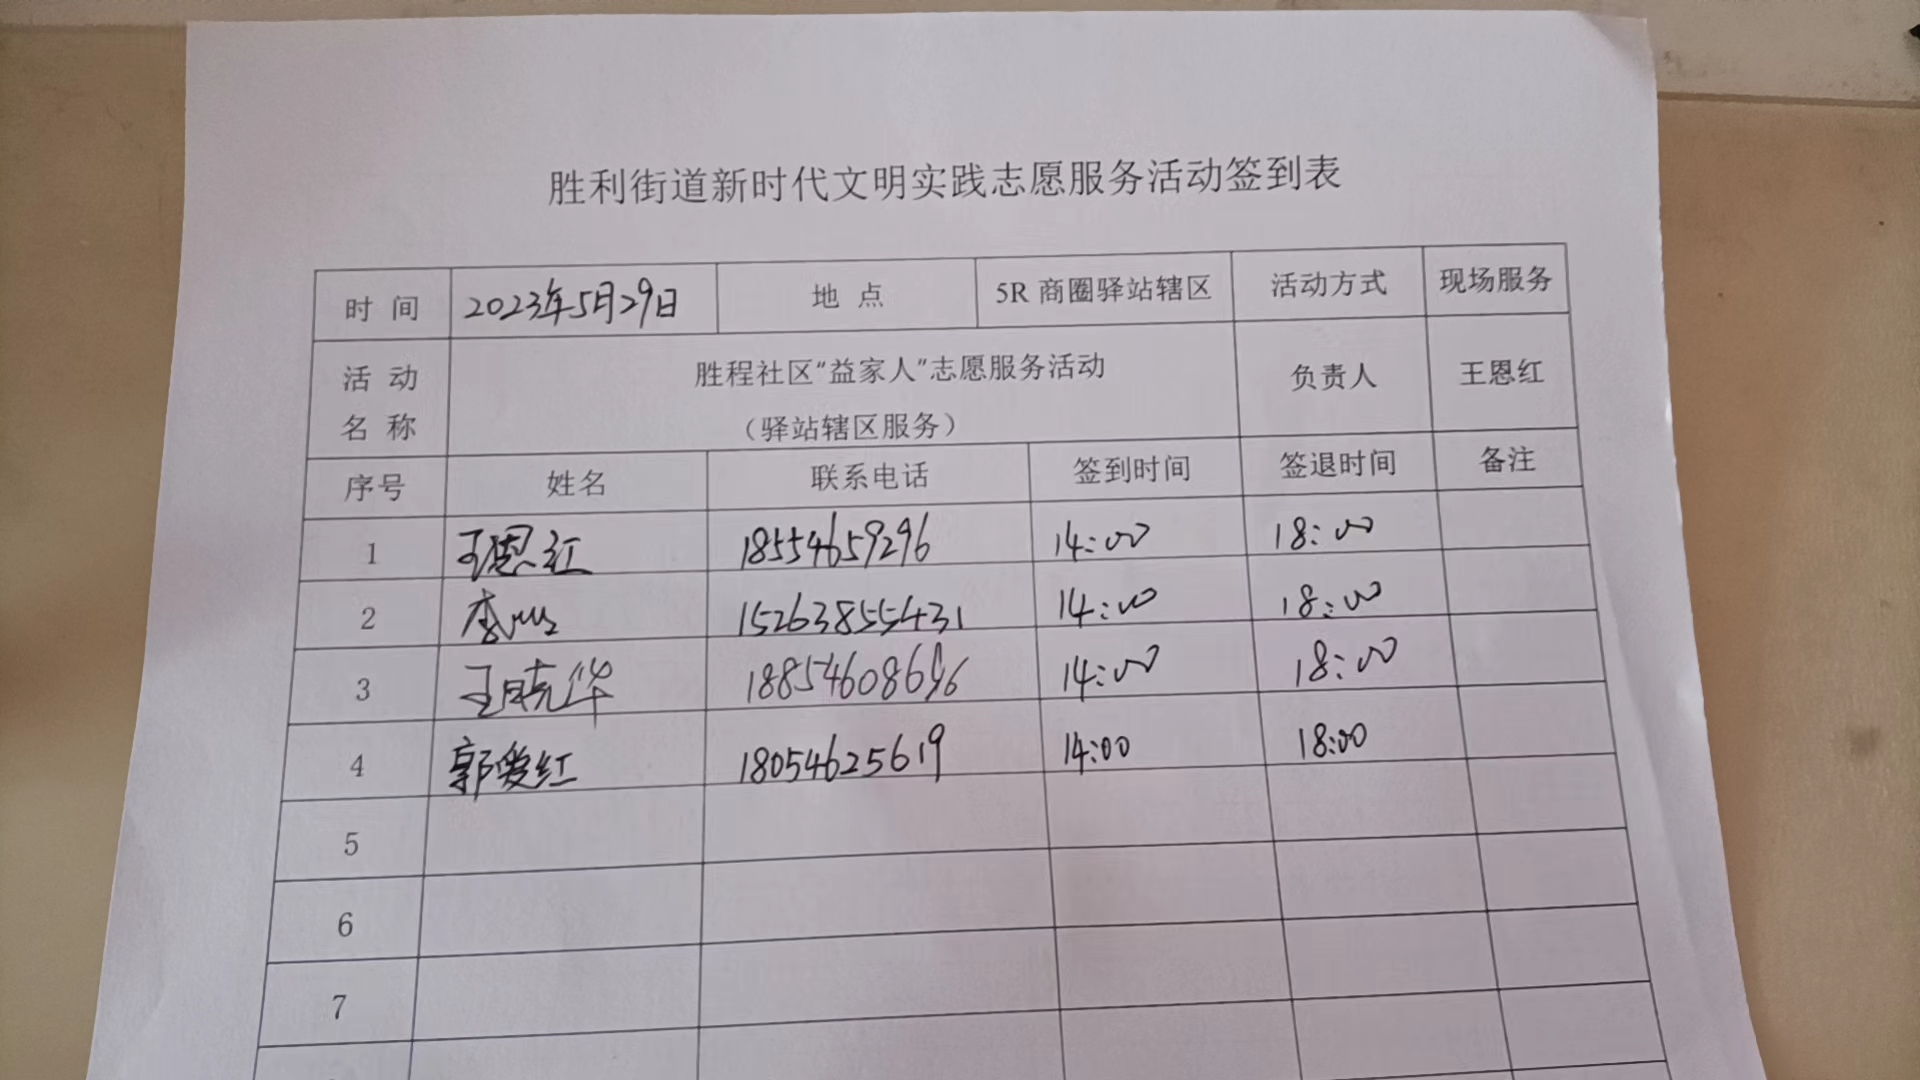 胜利街道新时代文明实践志愿服务活动签到表
时间 2023年5月29日 地点 5R商圈驿站辖区 活动方式 现场服务
活动名称 胜程社区“益家人”志愿服务活动 负责人 王恩红
（驿站辖区服务）
序号 姓名 联系电话 签到时间 签退时间 备注
1 王恩红 18554659296 14:00 18:00
2 李 15263855431 14:00 18:00
3 王晓华 18854608696 14:00 18:00
4 郭爱红 18054625619 14:00 18:00
5
6
7